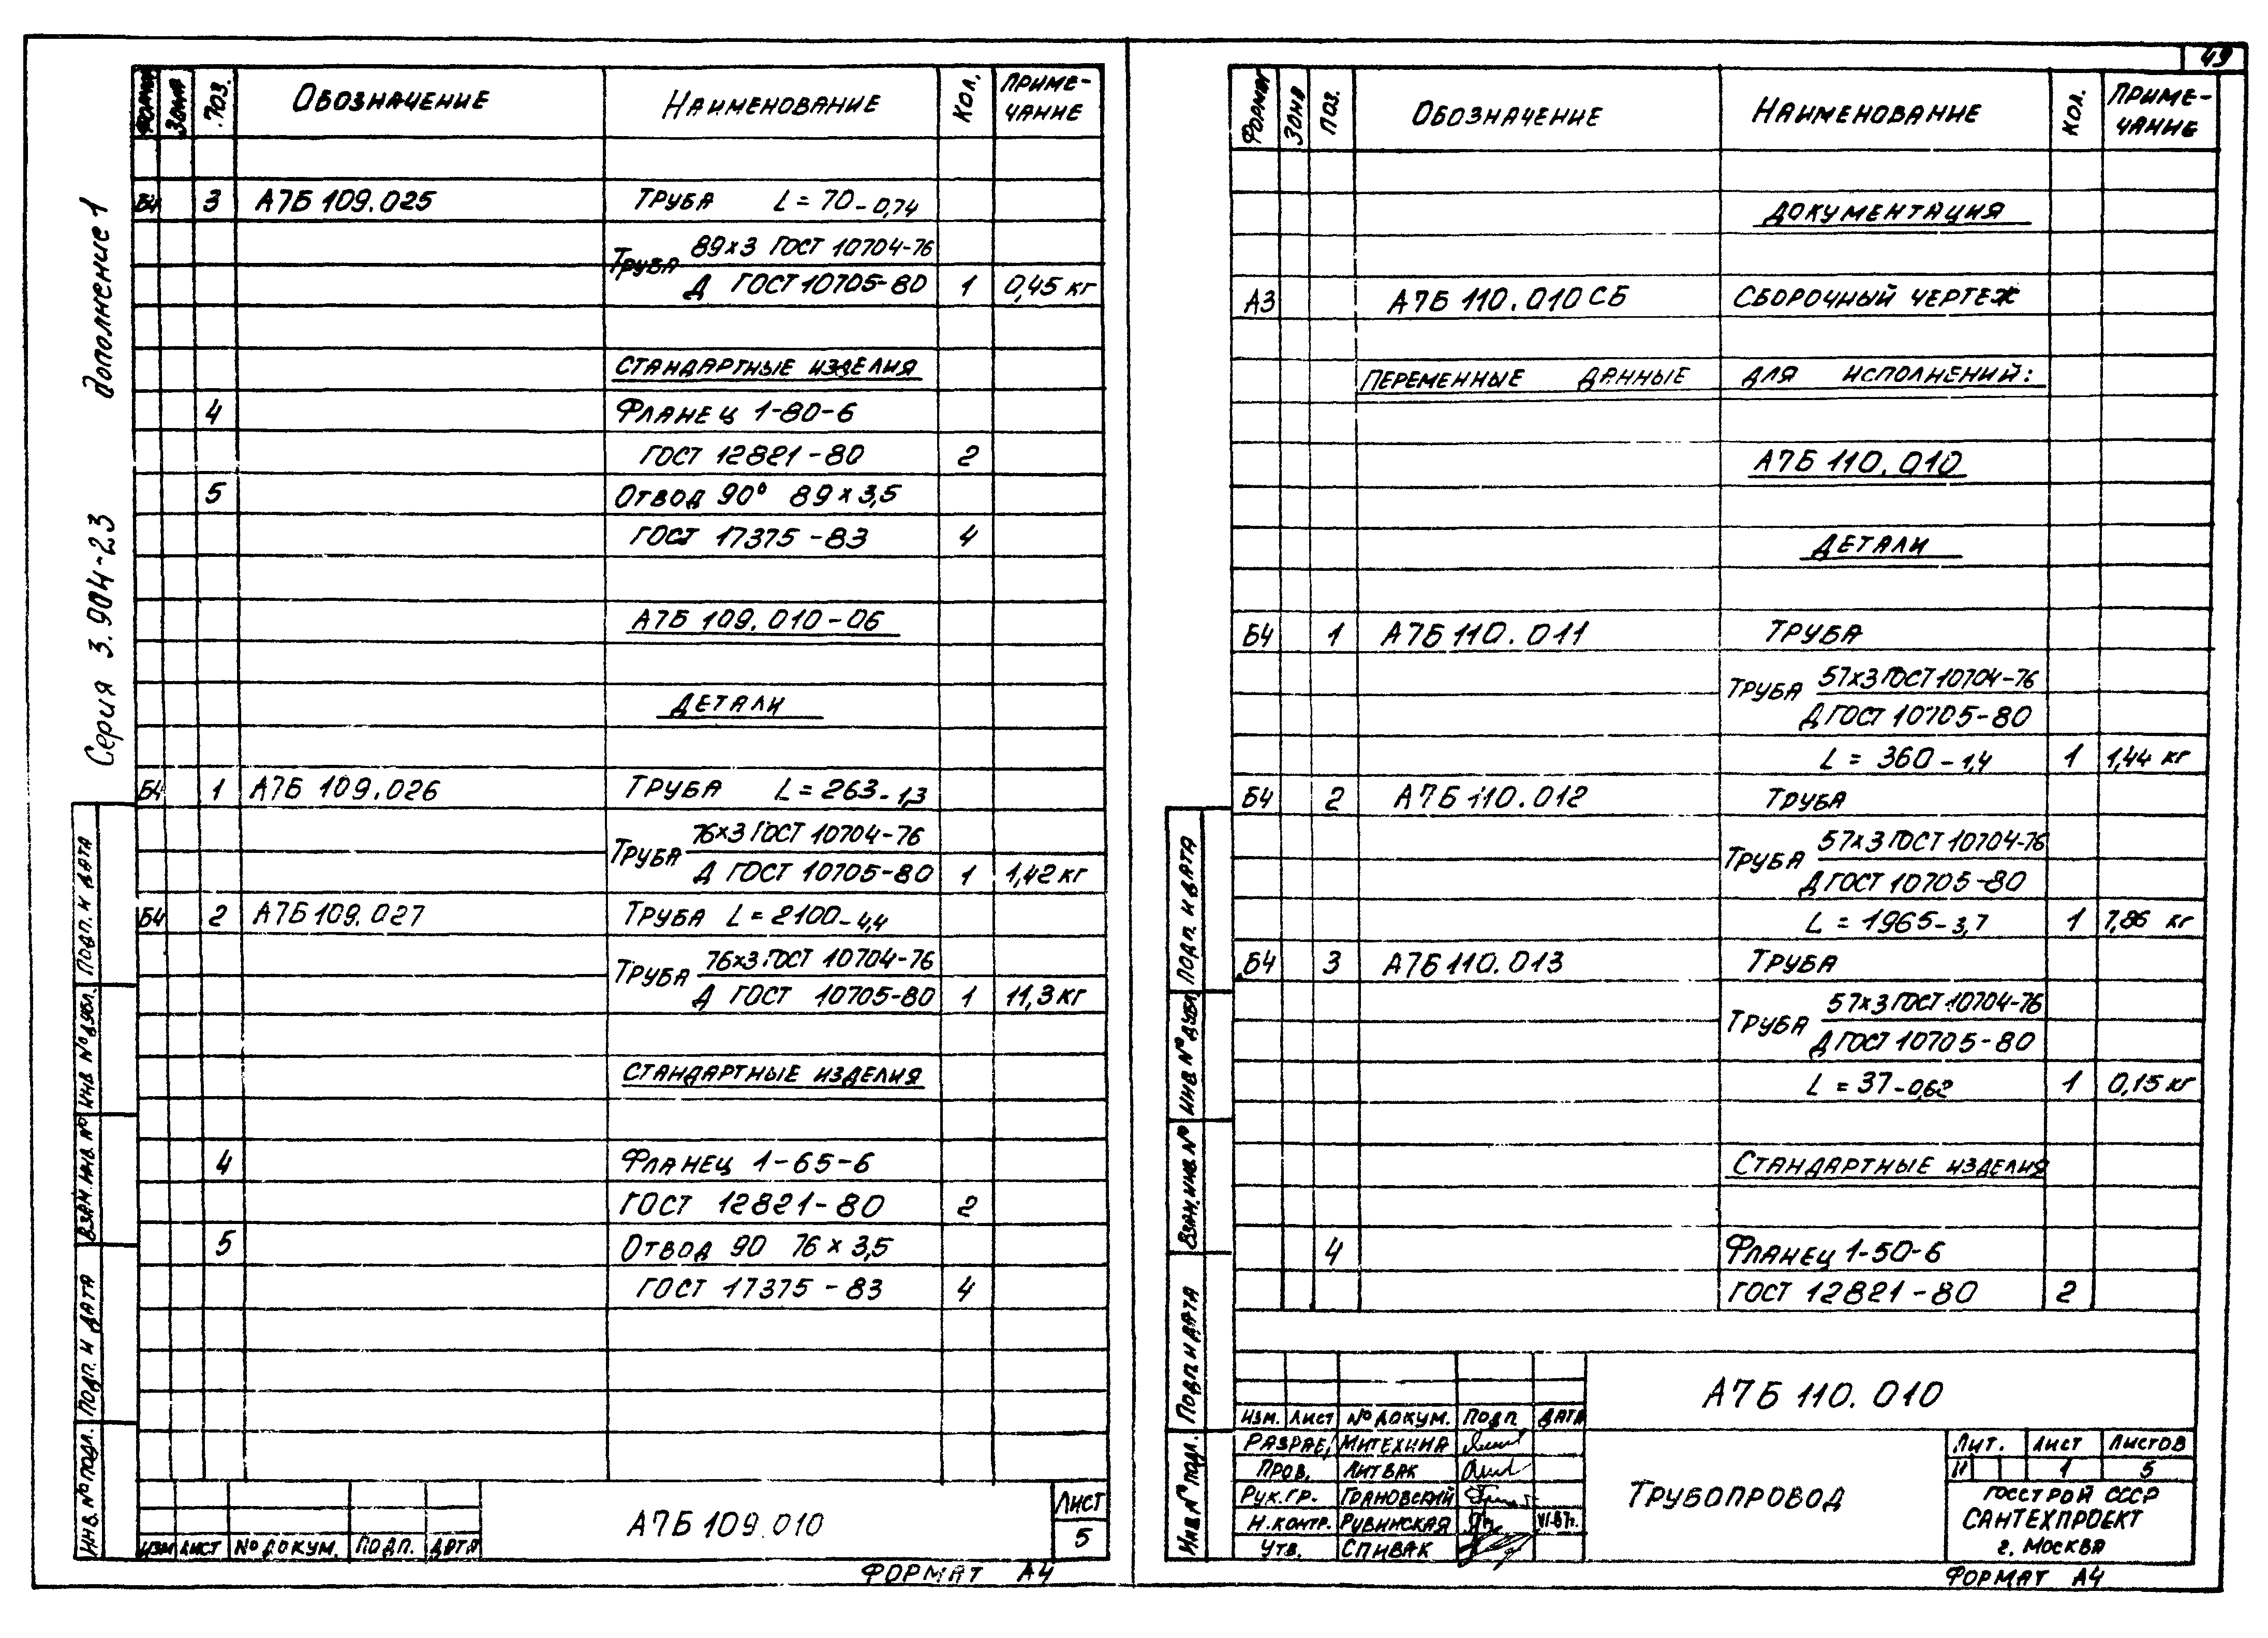 49
Серия 3.904-23 дополнение 1
ФОРМАТ ЗОНА ПОЗ. ОБОЗНАЧЕНИЕ НАИМЕНОВАНИЕ КОЛ. ПРИМЕ-
ЧАНИЕ
Б4 3 А7Б 109.025 ТРУБА L = 70 - 0,74
ТРУБА 89×3 ГОСТ 10704-76
Д ГОСТ 10705-80 1 0,45 кг
СТАНДАРТНЫЕ ИЗДЕЛИЯ
4 ФЛАНЕЦ 1-80-6
ГОСТ 12821-80 2
5 ОТВОД 90° 89×3,5
ГОСТ 17375-83 4
А7Б 109.010-06
ДЕТАЛИ
Б4 1 А7Б 109.026 ТРУБА L = 263 - 1,3
ТРУБА 76×3 ГОСТ 10704-76
Д ГОСТ 10705-80 1 1,42 кг
Б4 2 А7Б 109.027 ТРУБА L = 2100 - 4,4
ТРУБА 76×3 ГОСТ 10704-76
Д ГОСТ 10705-80 1 11,3 кг
СТАНДАРТНЫЕ ИЗДЕЛИЯ
4 ФЛАНЕЦ 1-65-6
ГОСТ 12821-80 2
5 ОТВОД 90 76×3,5
ГОСТ 17375-83 4
ИНВ. № ПОДЛ. ПОДП. И ДАТА ВЗАМ. ИНВ. № ИНВ № ДУБЛ. ПОДП. И ДАТА
ИЗМ ЛИСТ № ДОКУМ. ПОДП. ДАТА
А7Б 109.010
ЛИСТ
5
ФОРМАТ А4
ФОРМАТ ЗОНА ПОЗ. ОБОЗНАЧЕНИЕ НАИМЕНОВАНИЕ КОЛ. ПРИМЕ-
ЧАНИЕ
ДОКУМЕНТАЦИЯ
А3 А7Б 110.010 СБ СБОРОЧНЫЙ ЧЕРТЕЖ
ПЕРЕМЕННЫЕ ДАННЫЕ ДЛЯ ИСПОЛНЕНИЙ:
А7Б 110.010
ДЕТАЛИ
Б4 1 А7Б 110.011 ТРУБА
ТРУБА 57×3 ГОСТ 10704-76
Д ГОСТ 10705-80
L = 360 - 1,4 1 1,44 кг
Б4 2 А7Б 110.012 ТРУБА
ТРУБА 57×3 ГОСТ 10704-76
Д ГОСТ 10705-80
L = 1965 - 3,7 1 7,86 кг
Б4 3 А7Б 110.013 ТРУБА
ТРУБА 57×3 ГОСТ 10704-76
Д ГОСТ 10705-80
L = 37 - 0,62 1 0,15 кг
СТАНДАРТНЫЕ ИЗДЕЛИЯ
4 ФЛАНЕЦ 1-50-6
ГОСТ 12821-80 2
ИНВ № ПОДЛ. ПОДП. И ДАТА ВЗАМ. ИНВ. № ИНВ № ДУБЛ ПОДП. И ДАТА
ИЗМ. ЛИСТ № ДОКУМ. ПОДП ДАТА
РАЗРАБ. МИТЕХИНА
ПРОВ. ЛИТВАК
РУК.ГР. ГРАНОВСКИЙ
Н.КОНТР. РУВИНСКАЯ VI.87г.
УТВ. СПИВАК
А7Б 110.010
ТРУБОПРОВОД
ЛИТ. ЛИСТ ЛИСТОВ
И 1 5
ГОССТРОЙ СССР
САНТЕХПРОЕКТ
г. МОСКВА
ФОРМАТ А4